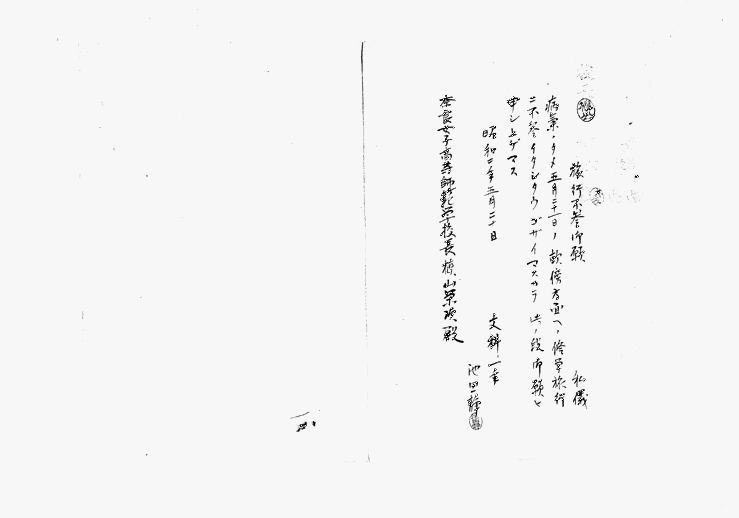 旅行不参御願
私儀
病気ノタメ五月二十一日ノ畝傍方面ヘノ修学旅行
ニ不参イタシタウゴザイマスカラ此ノ段御願ヒ
申シ上ゲマス
昭和二年五月二十日
文科一年
池田静
奈良女子高等師範学校長槇山栄次殿